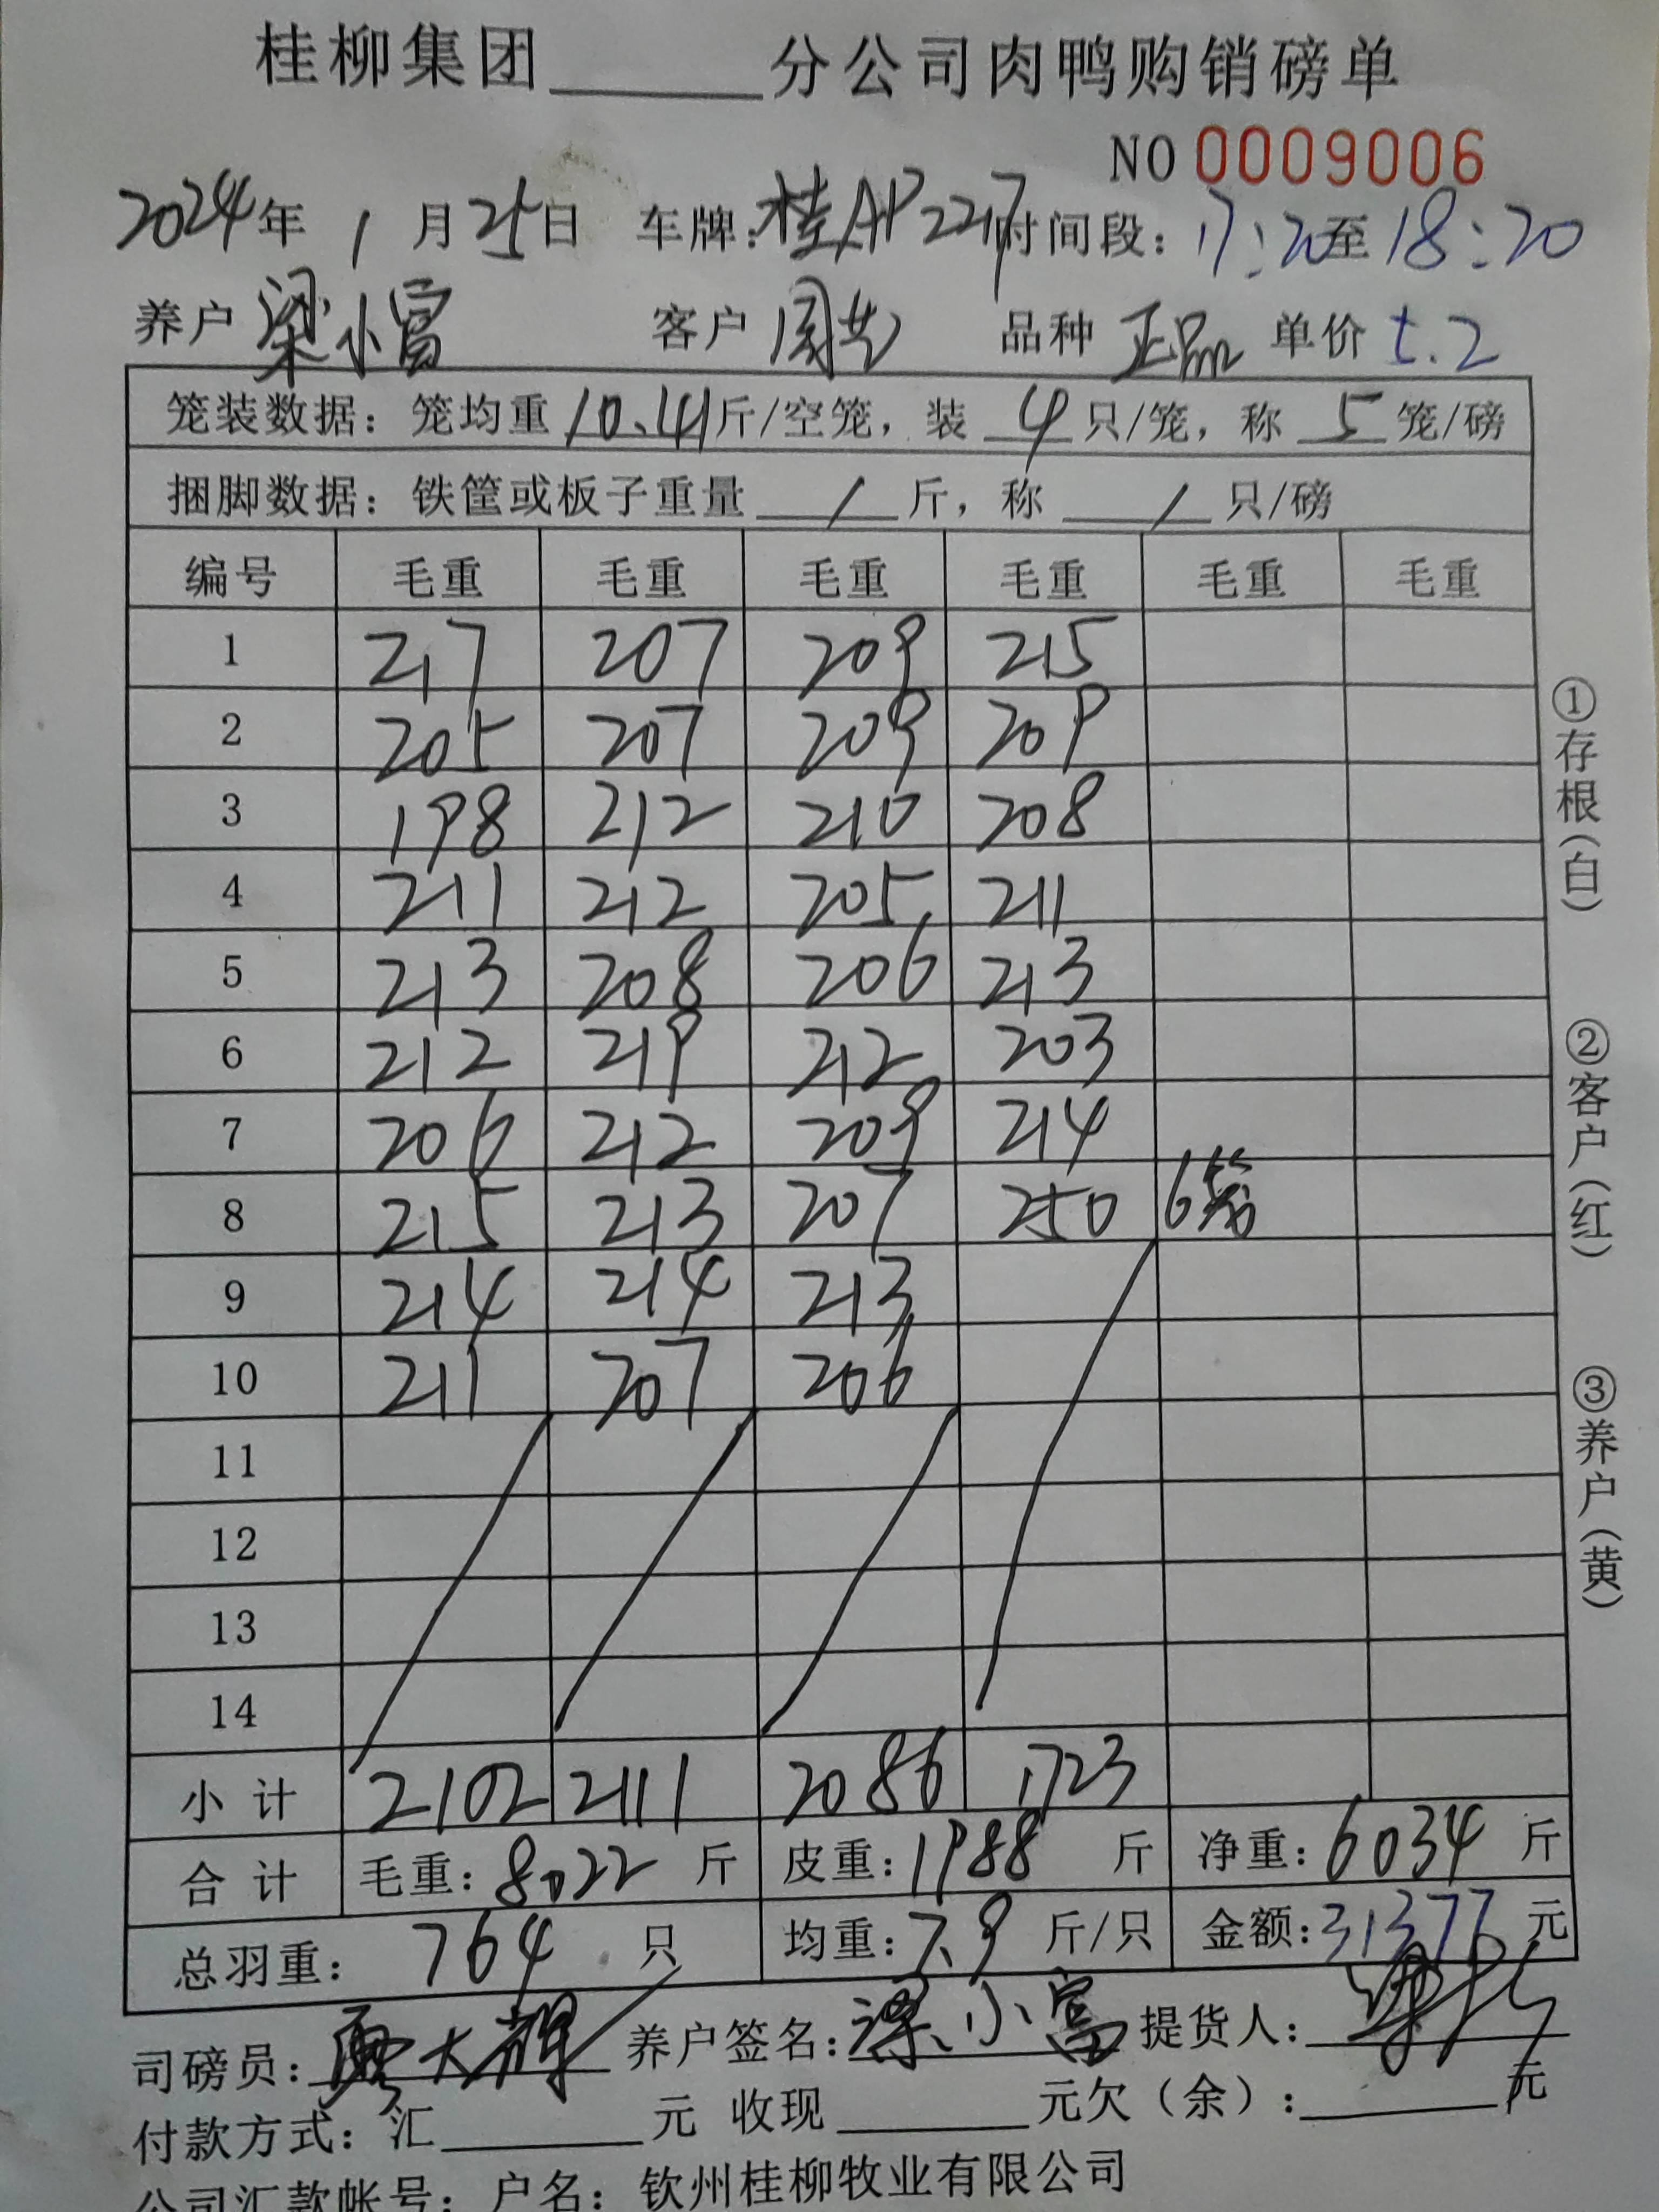 桂柳集团______分公司肉鸭购销磅单
NO 0009006
2024年 1 月25日 车牌:桂AP2217时间段:17:20至18:20
养户 梁小富 客户 周艺 品种 正品 单价 5.2
笼装数据:笼均重10.41斤/空笼,装 4 只/笼,称 5 笼/磅
捆脚数据:铁筐或板子重量 / 斤,称 / 只/磅
编号 毛重 毛重 毛重 毛重 毛重 毛重
1 217 207 209 215
2 205 207 209 209
3 198 212 210 208
4 211 212 205 211
5 213 208 206 213
6 212 219 212 203
7 206 212 209 214
8 215 213 207 250 6笼
9 214 214 213
10 211 207 206
11
12
13
14
小计 2102 2111 2086 1723
合计 毛重:8022 斤 皮重:1988 斤 净重:6034 斤
总羽重: 764 只 均重:7.9 斤/只 金额:31377 元
司磅员: 养户签名:梁小富 提货人:
付款方式:汇______元 收现______元欠(余):______元
公司汇款帐号:户名:钦州桂柳牧业有限公司
①存根(白)
②客户(红)
③养户(黄)